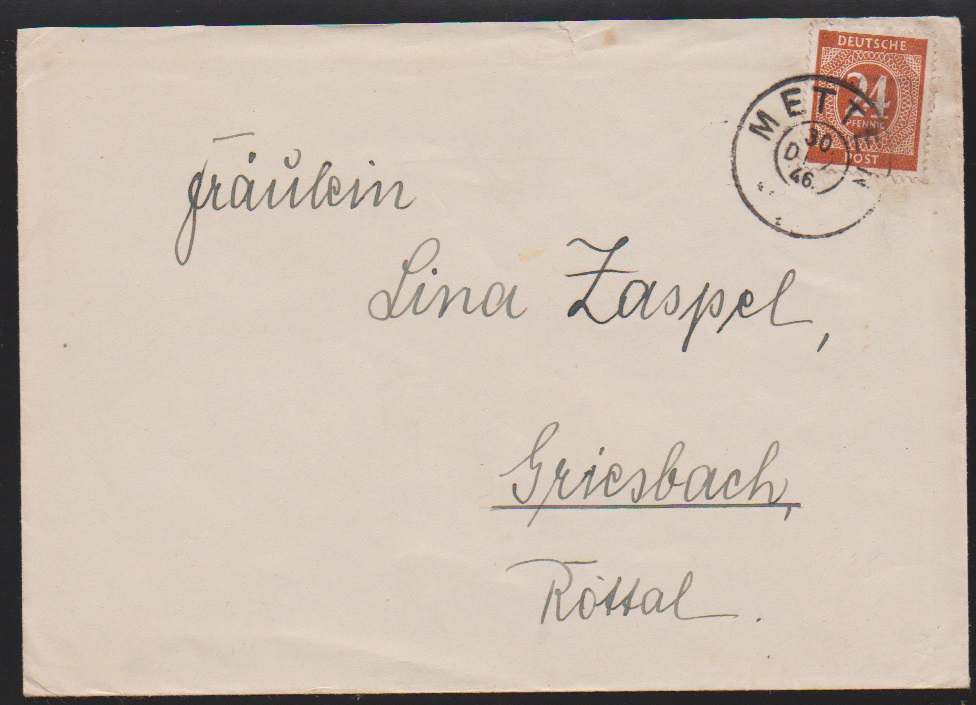 DEUTSCHE
24
PFENNIG
POST
METTEN
30
46.
Fräulein
Lina Zaspel,
Griesbach,
Röttal.